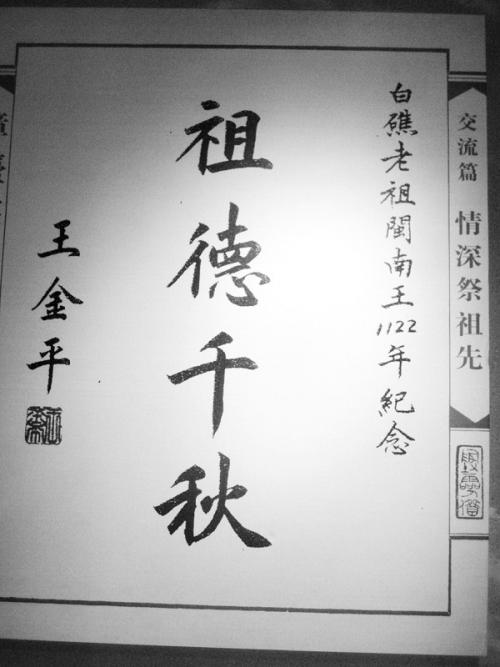 白礁老祖閩南王1122年紀念
祖德千秋
王金平
交流篇 情深祭祖先